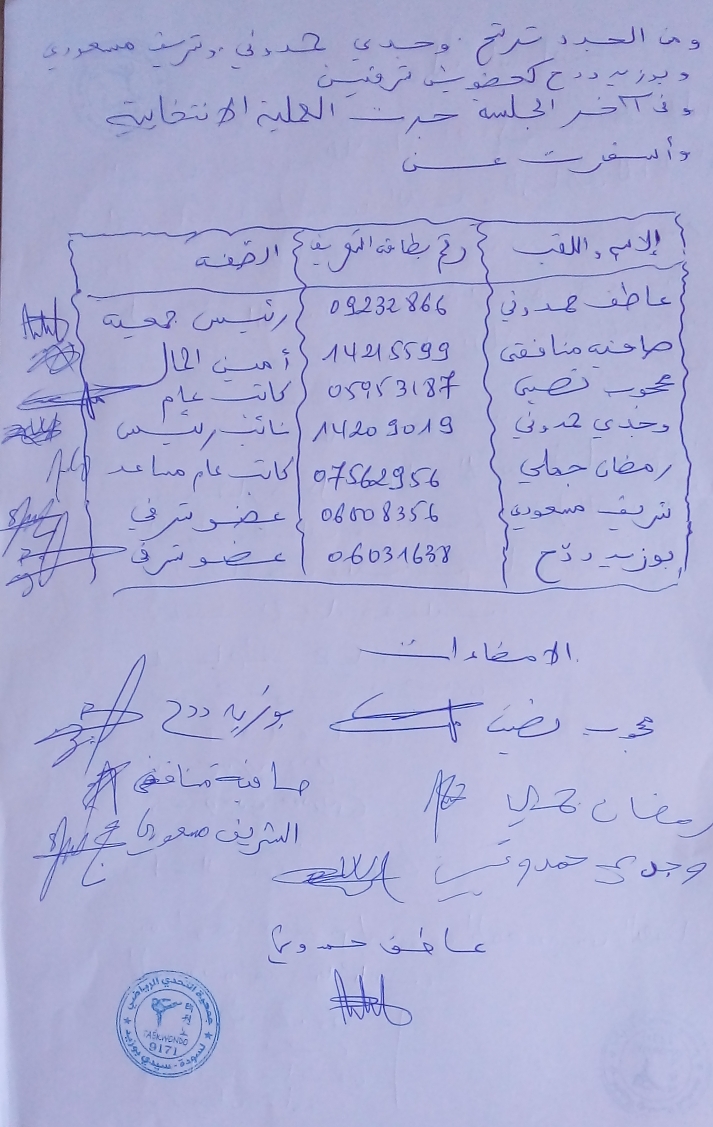 ومن الجدد ترشح وجدي حمدوني وشريف مسعودي
وبوزيد ردح كعضوين شرفيين
وفي آخر الجلسة جرت العملية الانتخابية
وأسفرت عن
الإسم واللقب رقم بطاقة التعريف الصفة
عاطف حمدوني 09232866 رئيس جمعية
صافية منافقي 14215599 أمين المال
محجوب نصيبي 05953187 كاتب عام
وجدي حمدوني 14209019 نائب رئيس
رمضان حملي 07562956 كاتب عام مساعد
شريف مسعودي 06008356 عضو شرفي
بوزيد ردح 06031638 عضو شرفي
الامضاءات
محجوب نصيبي بوزيد ردح
صافية منافقي
رمضان حملي
الشريف مسعودي
وجدي حمدوني
عاطف حمدوني
جمعية التحدي الرياضي
TAEKWONDO
9171
لسودة - سيدي بوزيد